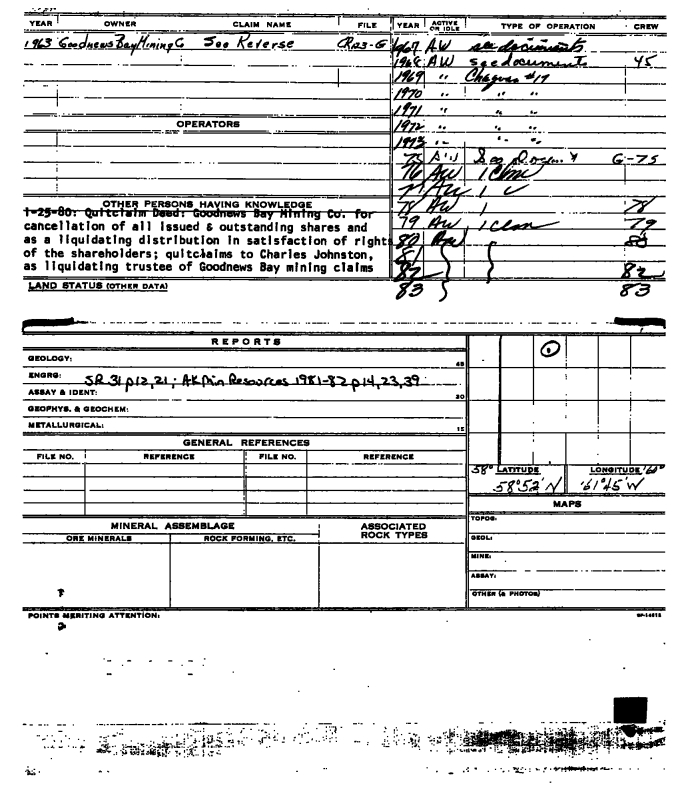 YEAR OWNER CLAIM NAME FILE YEAR ACTIVE OR IDLE TYPE OF OPERATION CREW
1963 Goodnews Bay Mining Co See Reverse CR23-G 1967 AW see documents
1968 AW see documents 45
1969 " Chagvan #17
1970 " " "
1971 " " "
1972 " " "
OPERATORS
1973 " " "
75 G-75
76 AW 1 Clm
77 AW 1
OTHER PERSONS HAVING KNOWLEDGE
78 AW 1 78
79 AW 1 Clm 79
80 AW 80
81
82 82
83 83
1-25-80: Quitclaim Deed: Goodnews Bay Mining Co. for
cancellation of all issued & outstanding shares and
as a liquidating distribution in satisfaction of rights
of the shareholders; quitclaims to Charles Johnston,
as liquidating trustee of Goodnews Bay mining claims
LAND STATUS (OTHER DATA)
REPORTS
GEOLOGY:
45
ENGRG: SR 31 p12,21; AK Min Resources 1981-82 p14,23,39
ASSAY & IDENT:
30
GEOPHYS. & GEOCHEM:
METALLURGICAL:
15
GENERAL REFERENCES
FILE NO. REFERENCE FILE NO. REFERENCE
58° LATITUDE LONGITUDE 161°
58°52' N 161°45' W
MAPS
TOPOG:
GEOL:
MINE:
ASSAY:
OTHER (& PHOTOS)
MINERAL ASSEMBLAGE ASSOCIATED ROCK TYPES
ORE MINERALS ROCK FORMING, ETC.
POINTS MERITING ATTENTION: